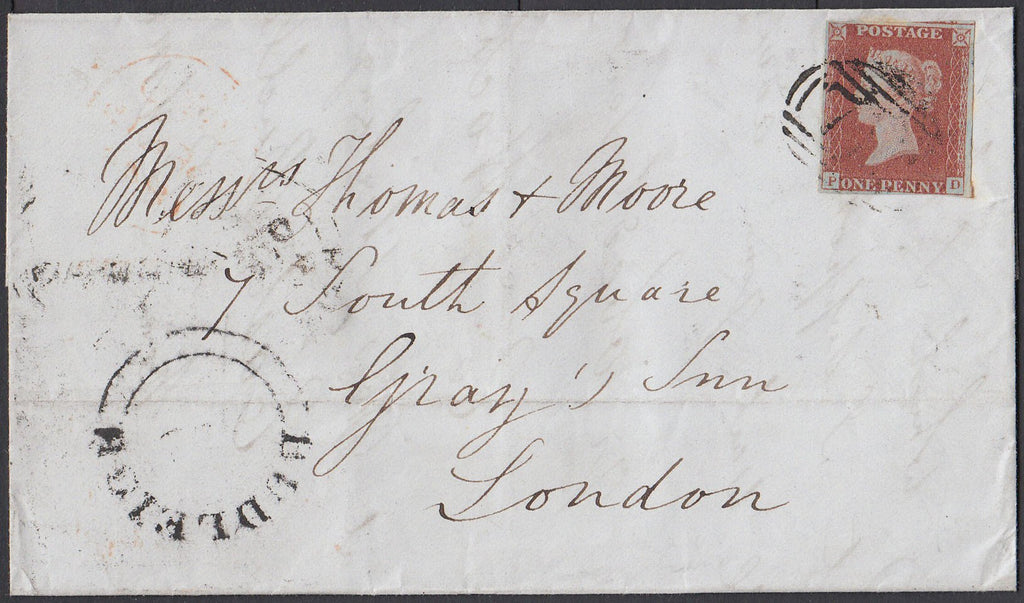 POSTAGE
P ONE PENNY D
Messrs Thomas + Moore
7 South Square
Gray's Inn
London
HADLEIGH